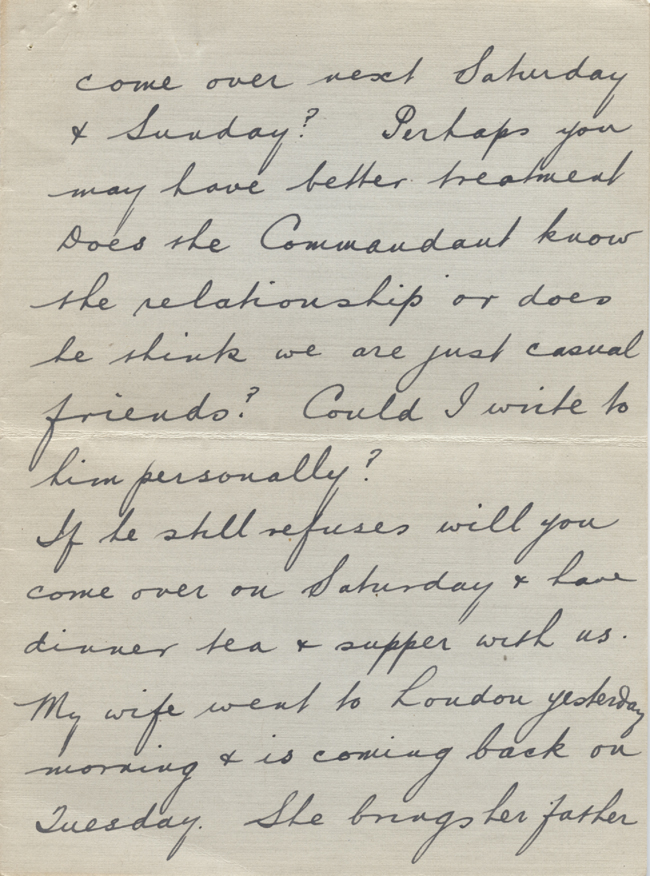 come over next Saturday
& Sunday? Perhaps you
may have better treatment
Does the Commandant know
the relationship or does
he think we are just casual
friends? Could I write to
him personally?
If he still refuses will you
come over on Saturday & have
dinner tea & supper with us.
My wife went to London yesterday
morning & is coming back on
Tuesday. She brings her father